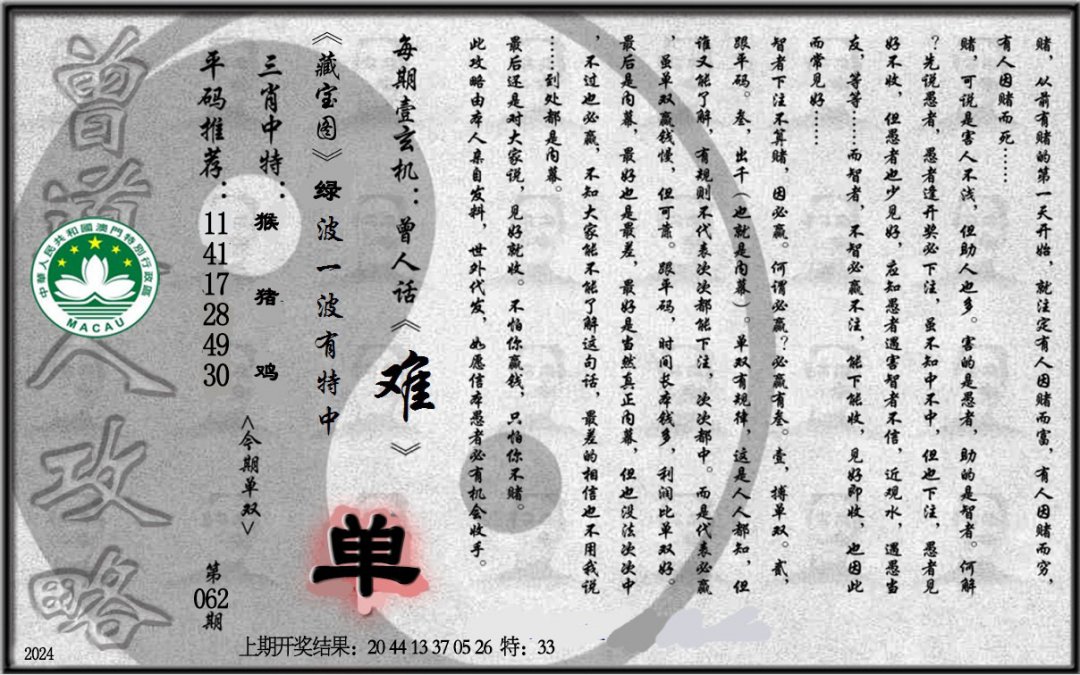 赌，从前有赌的第一天开始，就注定有人因赌而富，有人因赌而穷，
有人因赌而死……
赌，可说是害人不浅，但助人也多。害的是愚者，助的是智者。何解
？先说愚者，愚者逢开奖必下注，虽不知中不中，但也下注，愚者见
好不收，但愚者也少见好，应知愚者遇害智者不信，近观水，遇愚当
友，等等……而智者，不智必赢不注，能下能收，见好即收，也因此
而常见好……
智者下注不算赌，因必赢。何谓必赢？必赢有叁。壹，搏单双。贰，
跟平码。叁，出千（也就是内幕）。单双有规律，这是人人都知，但
谁又能了解，有规则不代表次次都能下注，次次都中。而是代表必赢
，虽单双赢钱慢，但可靠。跟平码，时间长本钱多，利润比单双好。
最后是内幕，最好也是最差，最好是当然真正内幕，但也没法次次中
，不过也必赢，不知大家能不能了解这句话，最差的相信也不用我说
……到处都是内幕。
最后还是对大家说，见好就收。不怕你赢钱，只怕你不赌。
此攻略由本人亲自发料，世外代发，如愿信本愚者必有机会收手。
每期壹玄机：曾人话《难》
《藏宝图》绿波一波有特中
单
三肖中特：猴 猪 鸡
<今期单双>
平码推荐：11 41 17 28 49 30
第062期
曾道人攻略
中華人民共和國澳門特別行政區
MACAU
上期开奖结果：20 44 13 37 05 26 特：33
2024